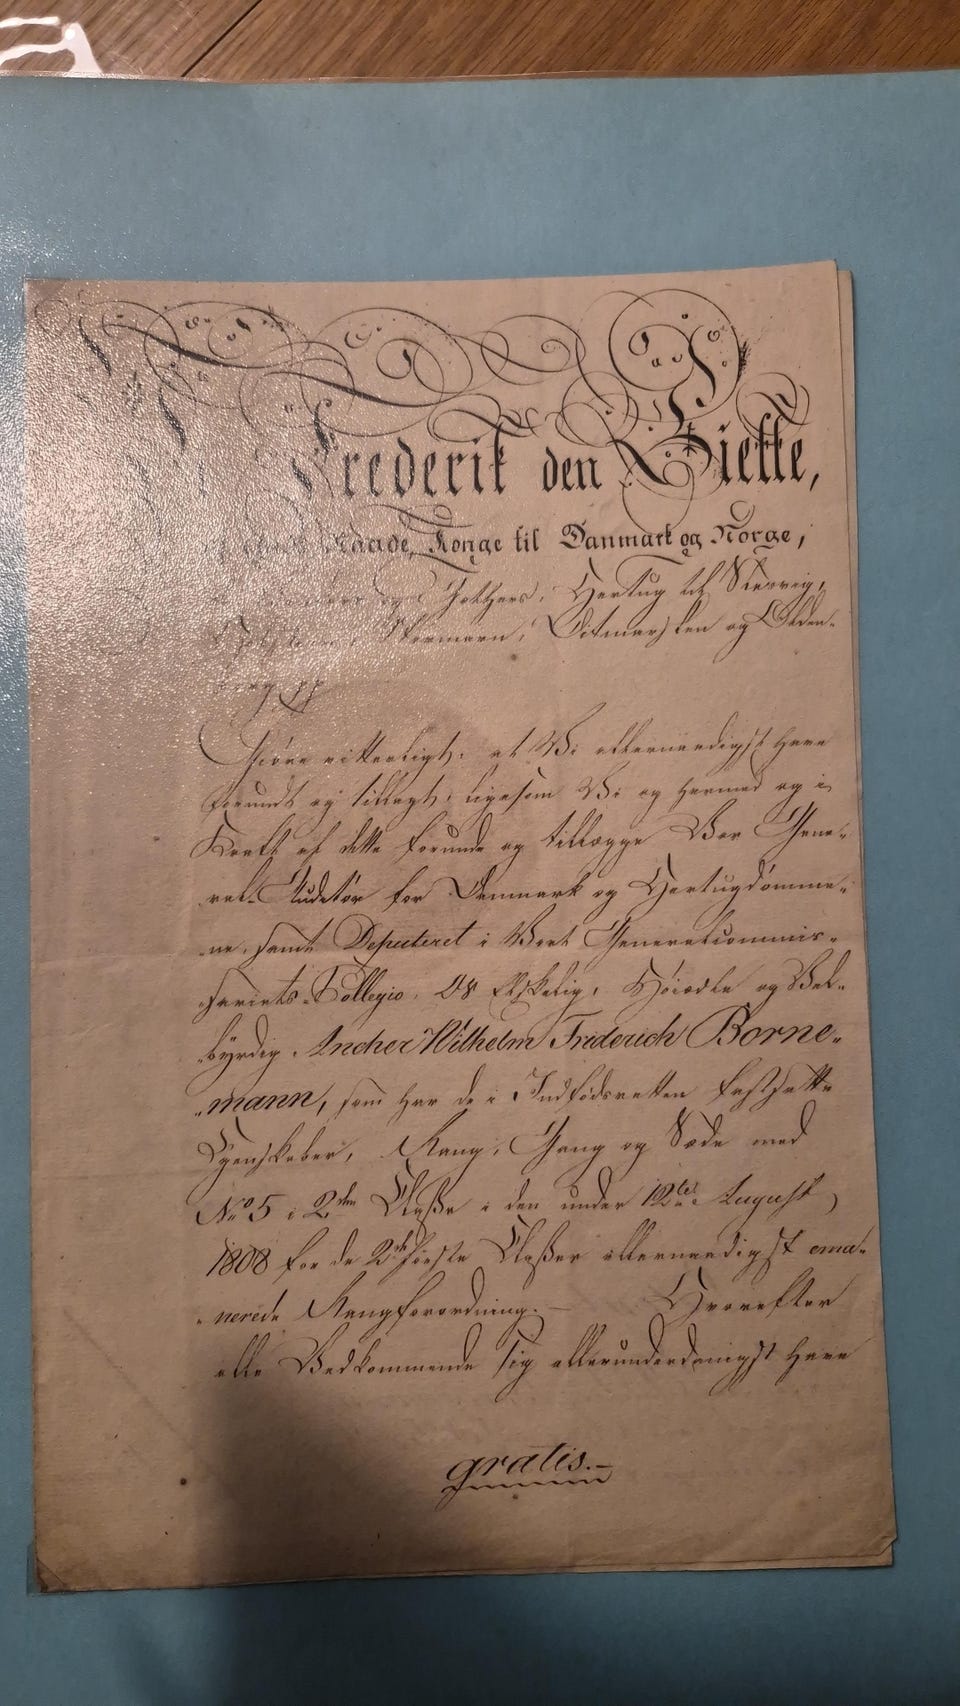 Frederik den Siette,
Naade, Konge til Danmark og Norge,
og Gothers, Hertug til Slesvig,
Stormarn, Ditmarsken og Olden-
borg
Giøre vitterligt, at Vi allernaadigst have
forundt og tillagt, ligesom Vi og hermed og i
Kraft af dette forunde og tillægge Vor Gene-
ral-Auditør for Danmark og Hertugdømme-
ne, samt Deputeret i Vort Generalcommis-
sariats-Collegio, Os Elskelig, Høiædle og Vel-
byrdig Ancher Wilhelm Friderich Borne-
mann, som har de i Indfødsretten fastsatte
Egenskaber, Rang, Gang og Sæde med
No 5 i 2den Classe i den under 12te August
1808 for de 2de første Classer allernaadigst ema-
nerede Rangforordning. — Hvorefter
alle Vedkommende sig allerunderdanigst have
gratis.—